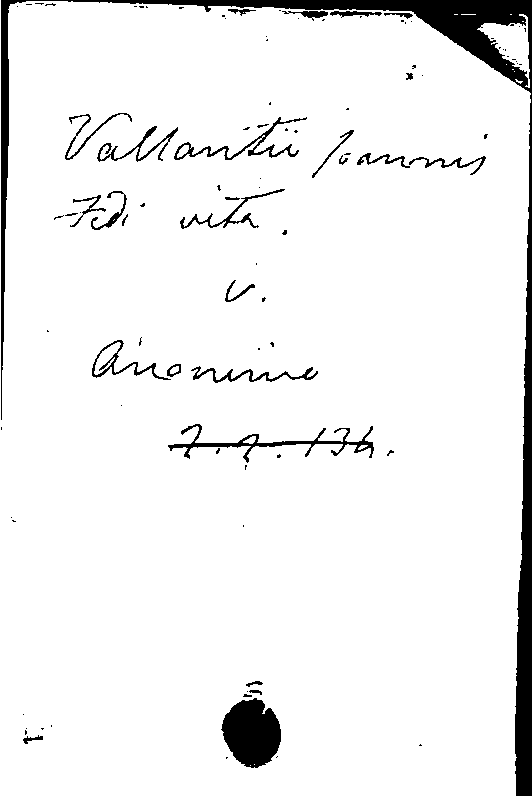 Vallantii Joannis
Fedi vita.
v.
Anonimo